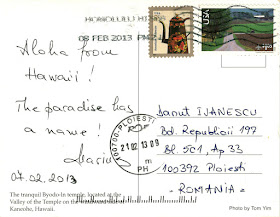 HONOLULU HI 968
08 FEB 2013 PM 2
USA
Aloha from
Hawaii!
The paradise has
a name!
Marius
07.02.2013
100700-PLOIESTI
21 02 13 09
m
PH
Danut IVANESCU
Bd. Republicii 197
Bl. 5C1, Ap 33
100392 Ploiesti
-ROMANIA-
The tranquil Byodo-In temple, located at the
Valley of the Temple on the
Kaneohe, Hawaii.
Photo by Tom Yim